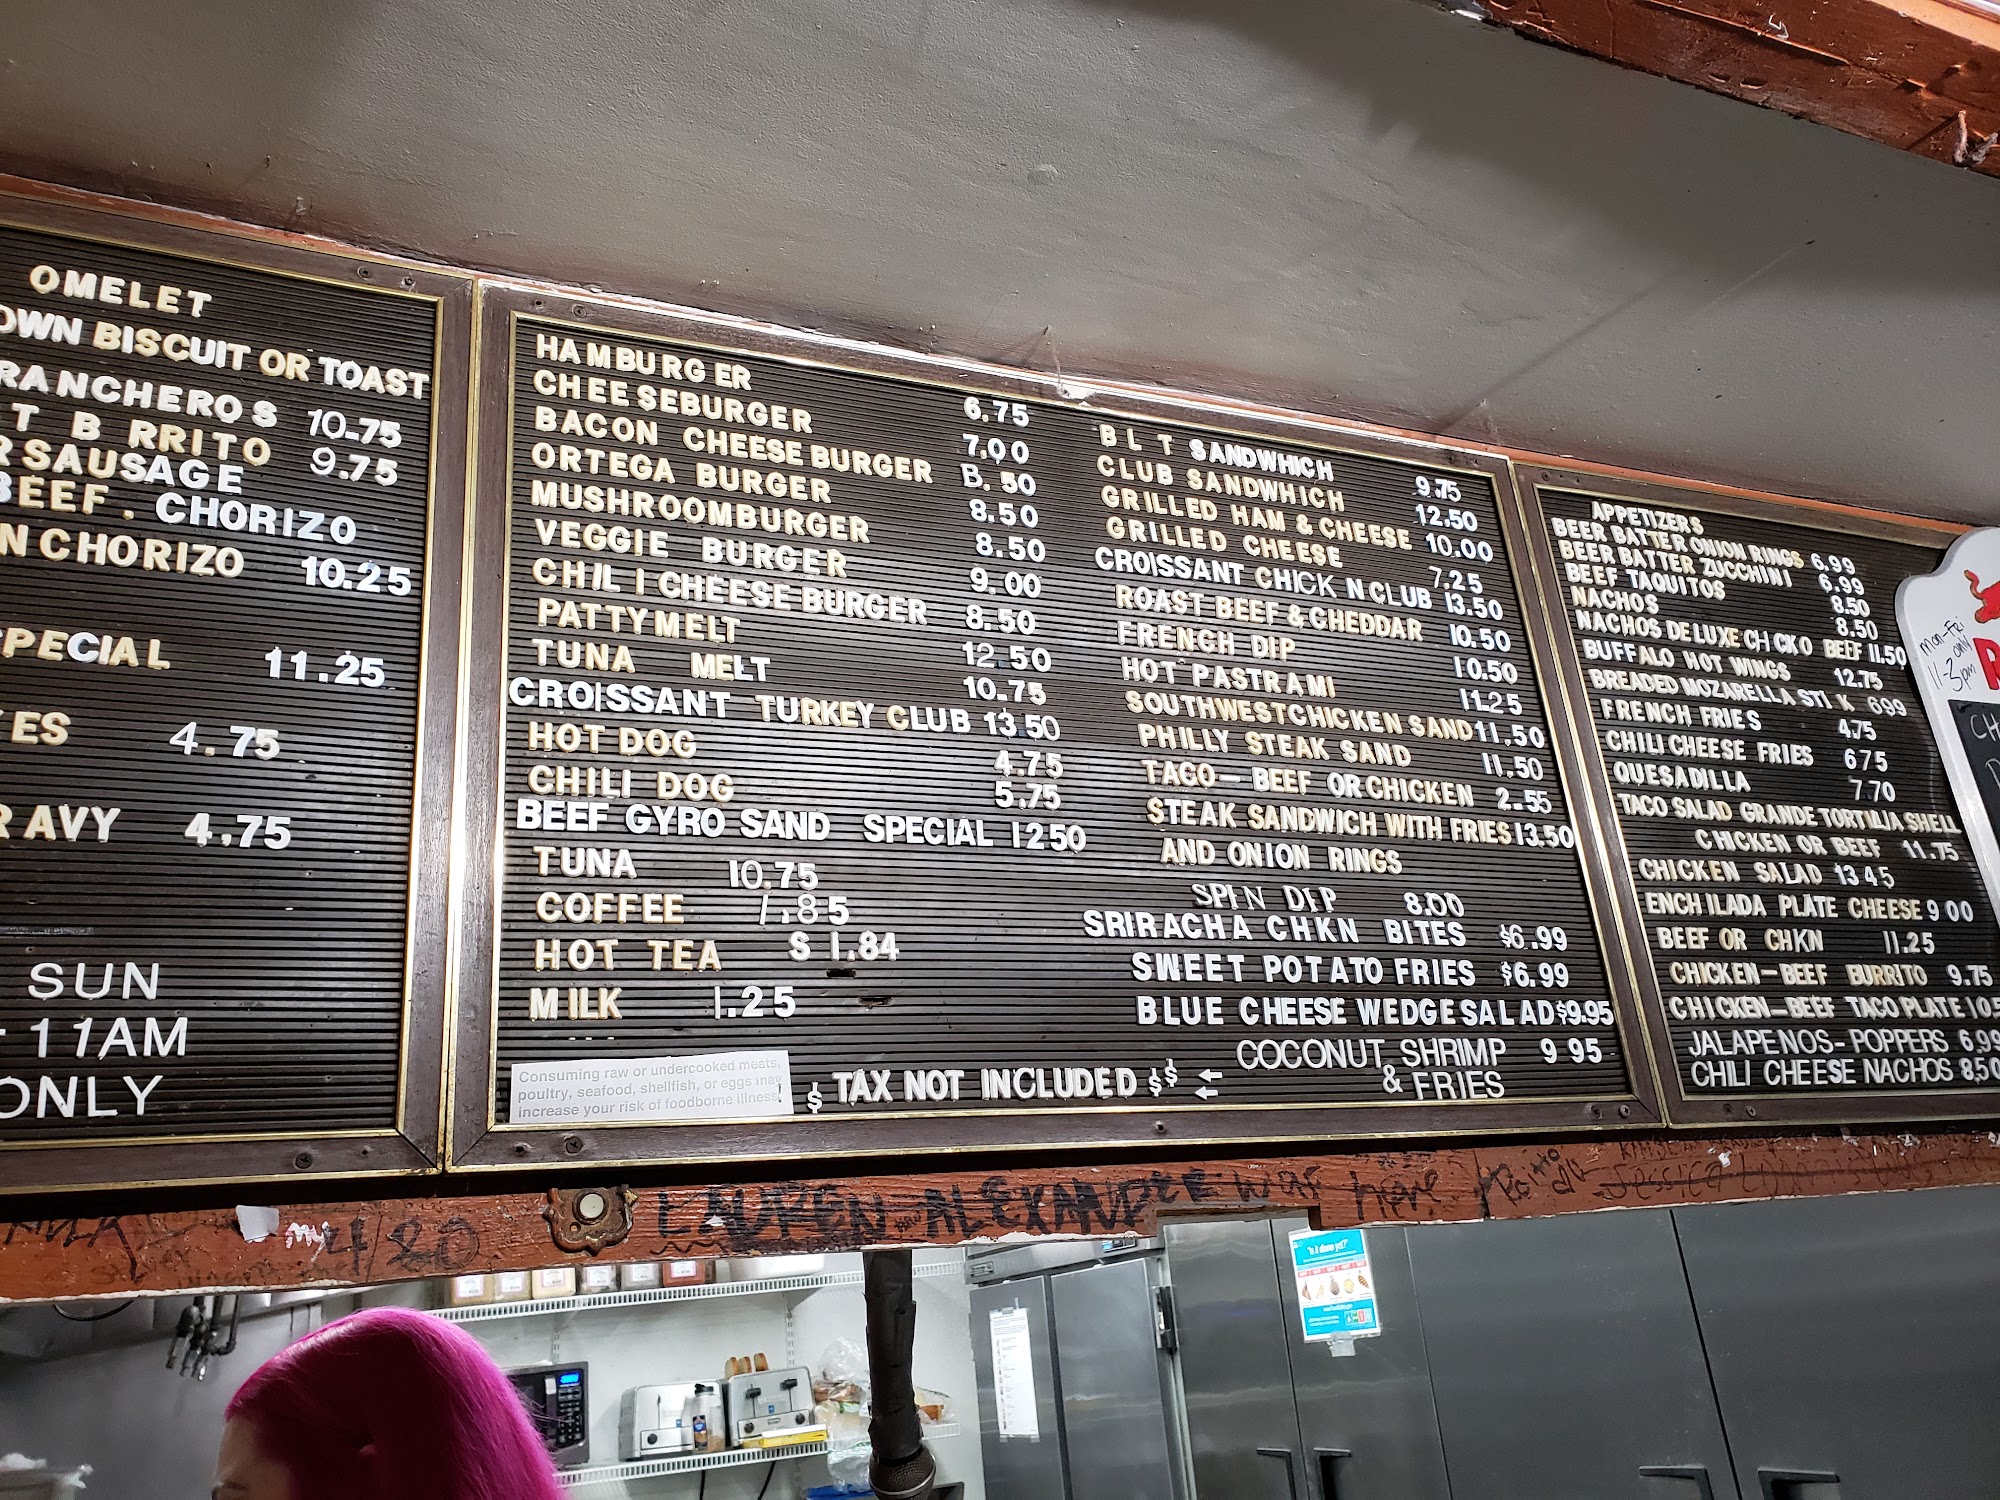 OMELET
OWN BISCUIT OR TOAST
RANCHEROS 10-75
T B RRITO 9.75
RSAUSAGE
BEEF. CHORIZO
N CHORIZO 10.25
PECIAL 11.25
ES 4.75
RAVY 4.75
SUN
-11AM
ONLY
HAMBURGER 6.75
CHEESEBURGER 7.00
BACON CHEESEBURGER B.50
ORTEGA BURGER 8.50
MUSHROOMBURGER 8.50
VEGGIE BURGER 9.00
CHILI CHEESE BURGER 8.50
PATTYMELT 12.50
TUNA MELT 10.75
CROISSANT TURKEY CLUB 13.50
HOT DOG 4.75
CHILI DOG 5.75
BEEF GYRO SAND SPECIAL 1250
TUNA 10.75
COFFEE 1.85
HOT TEA $ 1.84
MILK 1.25
Consuming raw or undercooked meats,
poultry, seafood, shellfish, or eggs may
increase your risk of foodborne illness!
$ TAX NOT INCLUDED $$
B L T SANDWHICH 9.75
CLUB SANDWHICH 12.50
GRILLED HAM & CHEESE 10.00
GRILLED CHEESE 7.25
CROISSANT CHICK N CLUB 13.50
ROAST BEEF & CHEDDAR 10.50
FRENCH DIP 10.50
HOT PASTRAMI 11.25
SOUTHWESTCHICKEN SAND 11.50
PHILLY STEAK SAND 11.50
TACO- BEEF OR CHICKEN 2.55
STEAK SANDWICH WITH FRIES 13.50
AND ONION RINGS
SPIN DIP 8.00
SRIRACHA CHKN BITES $6.99
SWEET POTATO FRIES $6.99
BLUE CHEESE WEDGE SALAD $9.95
← COCONUT SHRIMP 9 95
← & FRIES
APPETIZERS
BEER BATTER ONION RINGS 6.99
BEER BATTER ZUCCHINI 6.99
BEEF TAQUITOS 8.50
NACHOS 8.50
NACHOS DELUXE CHICK O BEEF 11.50
BUFFALO HOT WINGS 12.75
BREADED MOZARELLA STI K 699
FRENCH FRIES 4.75
CHILI CHEESE FRIES 675
QUESADILLA 7.70
TACO SALAD GRANDE TORTILLIA SHELL
CHICKEN OR BEEF 11.75
CHICKEN SALAD 13 45
ENCHILADA PLATE CHEESE 9 00
BEEF OR CHKN 11.25
CHICKEN-BEEF BURRITO 9.75
CHICKEN-BEEF TACO PLATE 10.5
JALAPENOS-POPPERS 6 99
CHILI CHEESE NACHOS 8,50
mon-Fri
only
11-3pm
R
CH
4/20
LAUREN ALEXANDER was here
"Is it done yet?"